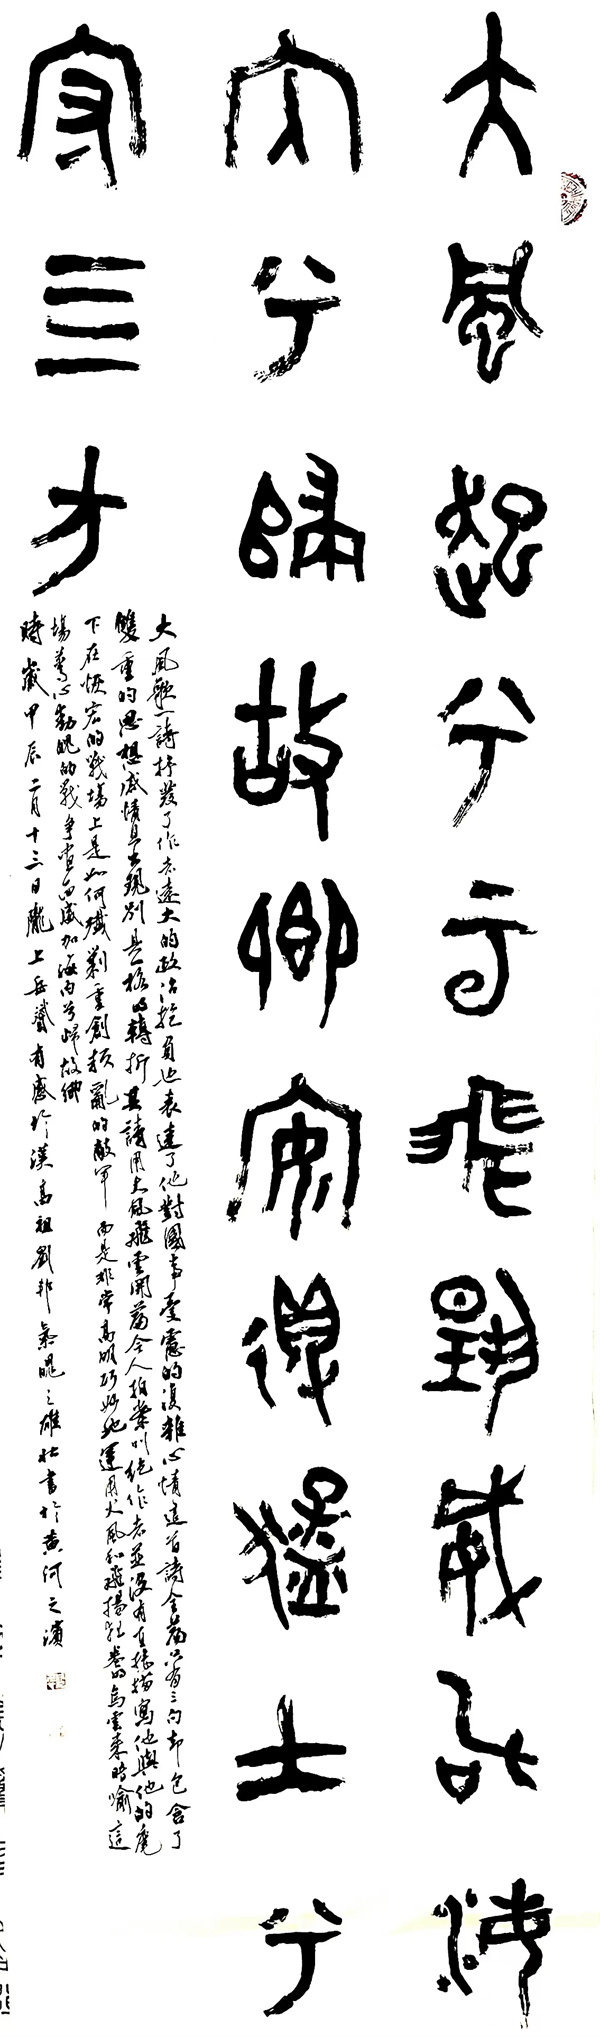 大風起兮云飛揚威加海
内兮歸故鄉安得猛士兮
守四方
大風歌一詩抒發了作者遠大的政治抱負也表達了他對國事憂慮的復雜心情這首詩全篇只有三句却包含了
雙重的思想感情且出現別具一格的轉折其詩用大風飛雲開篇令人拍案叫絶作者並没有直接描寫他與他的麾
下在恢宏的戰場上是如何殲剿重創叛亂的敵軍而是非常高明巧妙地運用大風和飛揚狂卷的烏雲來暗喻這
場驚心動魄的戰争畫面威加海内兮歸故鄉
時歲甲辰二月十三日隴上岳贇有感於漢高祖劉邦氣魄之雄壯書於黄河之濱